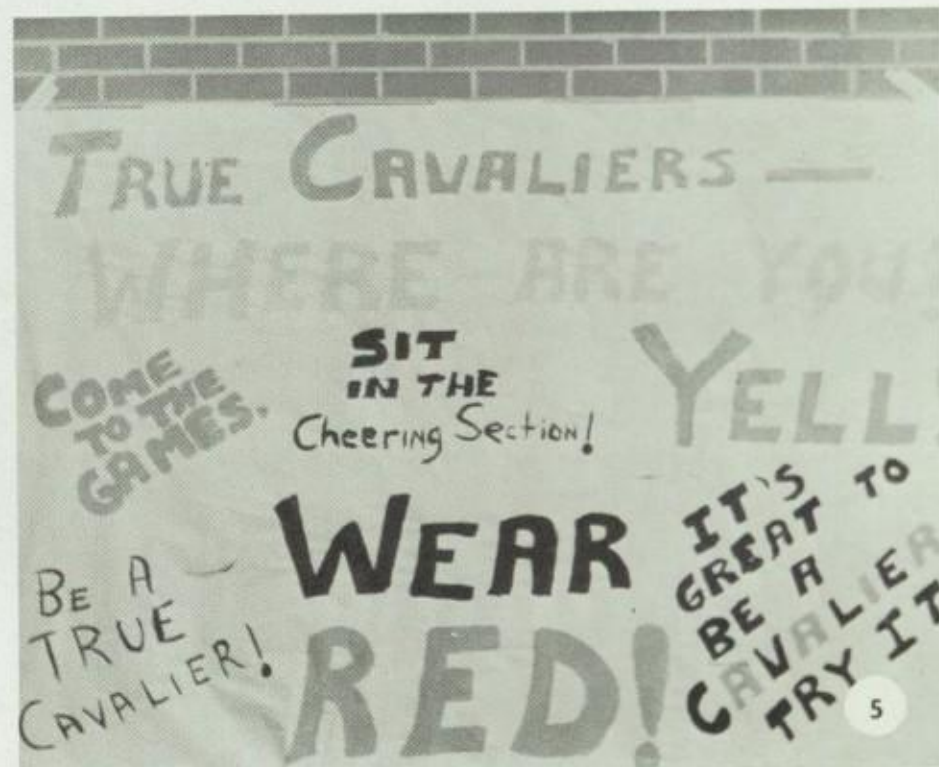 TRUE CAVALIERS —
WHERE ARE YOU?
COME
TO THE
GAMES.
SIT
IN THE
Cheering Section!
YELL!
BE A —
TRUE
CAVALIER!
WEAR
RED!
IT'S
GREAT TO
BE A
CAVALIER
TRY IT
5